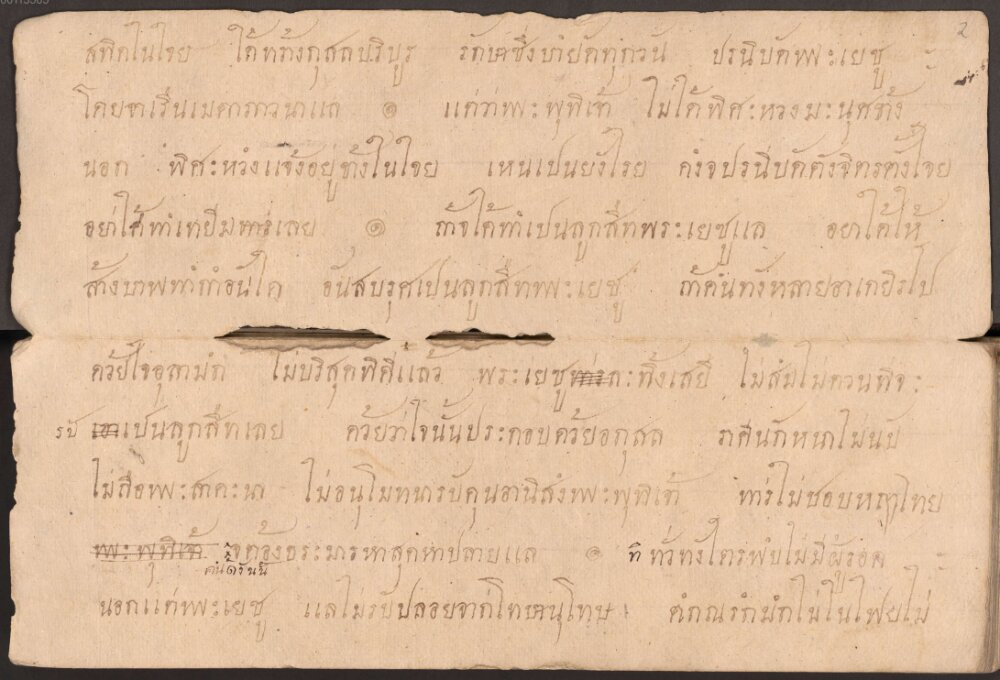 2
สทิดไนใจย ได้ทท้างกุสลบริบูร รักษาซึ่งบายัดทุกวัน ปรนิบัดพระเยซู
โดยจาเรีนเมดาภาวนาแล ๑ แต่ว่าพระพุทิเจ้า ไม่ได้พิศะหวงมะนุศทัง
นอก พิศะหวํงแจ้งอยู่ทังไนใจย เหนเปนยังไรย คํงจปรนิบัดตังจิตรตั้งใจย
อย่าได้ทำเทยีมทารเลย ๑ ถ้าจได้ทำเปนลูกสีทพระเยซูแล อย่าได้ให้
ล้างบาพทำกำอันได อันสบรุศเปนลูกสีทพระเยซู ถ้าคํนทังหลายอาเกยีรไป
ด้วยใจอุลามํก ไม่บริสุดพิศีแล้ว พระเยซูละทิ้งเสยี ไม่สํมไม่ควนพิจะ
รับ เปนลูกสีทเลย ด้วยว่าใจนั้นประกอบด้วยอกุสล
ไม่ถือพระสาคะนา ไม่อนุโมทนารับคุนอานิสํงพระพุทิเจ้า ทารไม่ชอบ
พระพุทิเจ้า จต้องธระมารหาสุดหาปลายแล ๑ ทิ ทัวทังไตรพํบไม่มีผู้รอด
คํนดังนนี้
นอกแต่พระเยซู แลไม่รับปลอยจากโทษานุโทษ